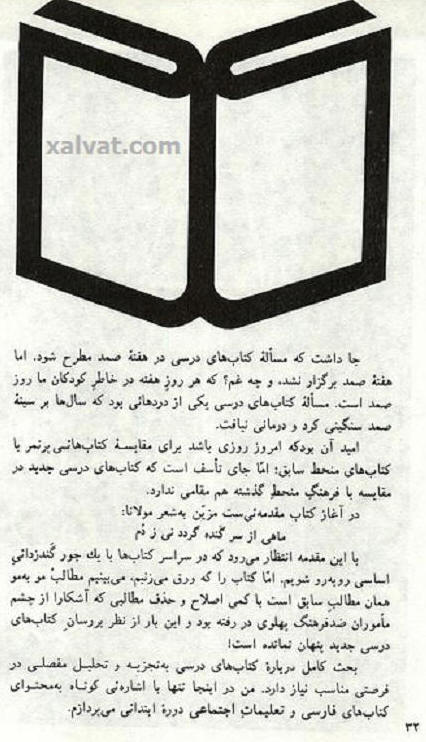 xalvat.com
جا داشت که مسألهٔ کتاب‌های درسی در هفتهٔ صمد مطرح شود. اما
هفتهٔ صمد برگزار نشد، و چه غم؟ که هر روزِ هفته در خاطرِ کودکان ما روز
صمد است. مسألهٔ کتاب‌های درسی یکی از دردهائی بود که سال‌ها بر سینهٔ
صمد سنگینی کرد و درمانی نیافت.
امید آن بودکه امروز روزی باشد برای مقایسهٔ کتاب‌هائی پرثمر با
کتاب‌های منحط سابق؛ امّا جای تأسف است که کتاب‌های درسی جدید در
مقایسه با فرهنگِ منحطِ گذشته هم مقامی ندارد.
در آغاز کتاب مقدمه‌ئی‌ست مزیّن به‌شعر مولانا:
ماهی از سر گنده گردد نی ز دُم
با این مقدمه انتظار می‌رود که در سراسر کتاب‌ها با یك جور گندزدائیِ
اساسی روبه‌رو شویم. امّا کتاب را که ورق می‌زنیم، می‌بینیم مطالبْ مو به‌مو
همان مطالبِ سابق است با کمی اصلاح و حذف مطالبی که آشکارا از چشم
مأموران ضدفرهنگ پهلوی در رفته بود و این بار از نظر بررسانِ کتاب‌های
درسی جدید پنهان نمانده است!
بحث کامل دربارهٔ کتاب‌های درسی به‌تجزیه و تحلیل مفصلی در
فرصتی مناسب نیاز دارد. من در اینجا تنها با اشاره‌ئی کوتاه به‌محتوای
کتاب‌های فارسی و تعلیماتِ اجتماعی دورهٔ ابتدائی می‌پردازم.
۳۲